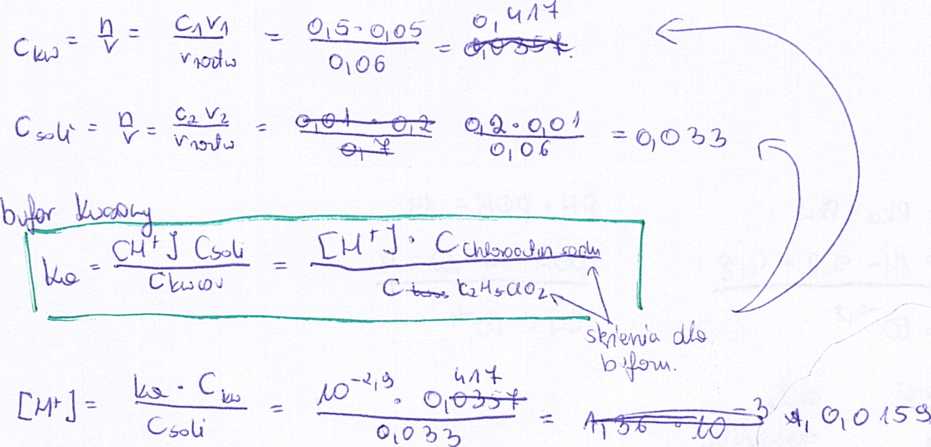 C kw = n/v = C₁V₁ / V roztw = 0,5 · 0,05 / 0,06 = 0,417
C soli = n/v = C₂V₂ / V roztw = 0,01 · 0,2 / 0,7 0,2 · 0,01 / 0,06 = 0,033
bufor kwasowy
ka = [H⁺] C soli / C kwasu = [H⁺] · C chlorooctan sodu / C C₂H₃ClO₂
stężenia dla
buforu.
[H⁺] = ka · C kw / C soli = 10⁻²,⁹ · 0,417 / 0,033 = 1,36 · 10⁻³ 0,0159